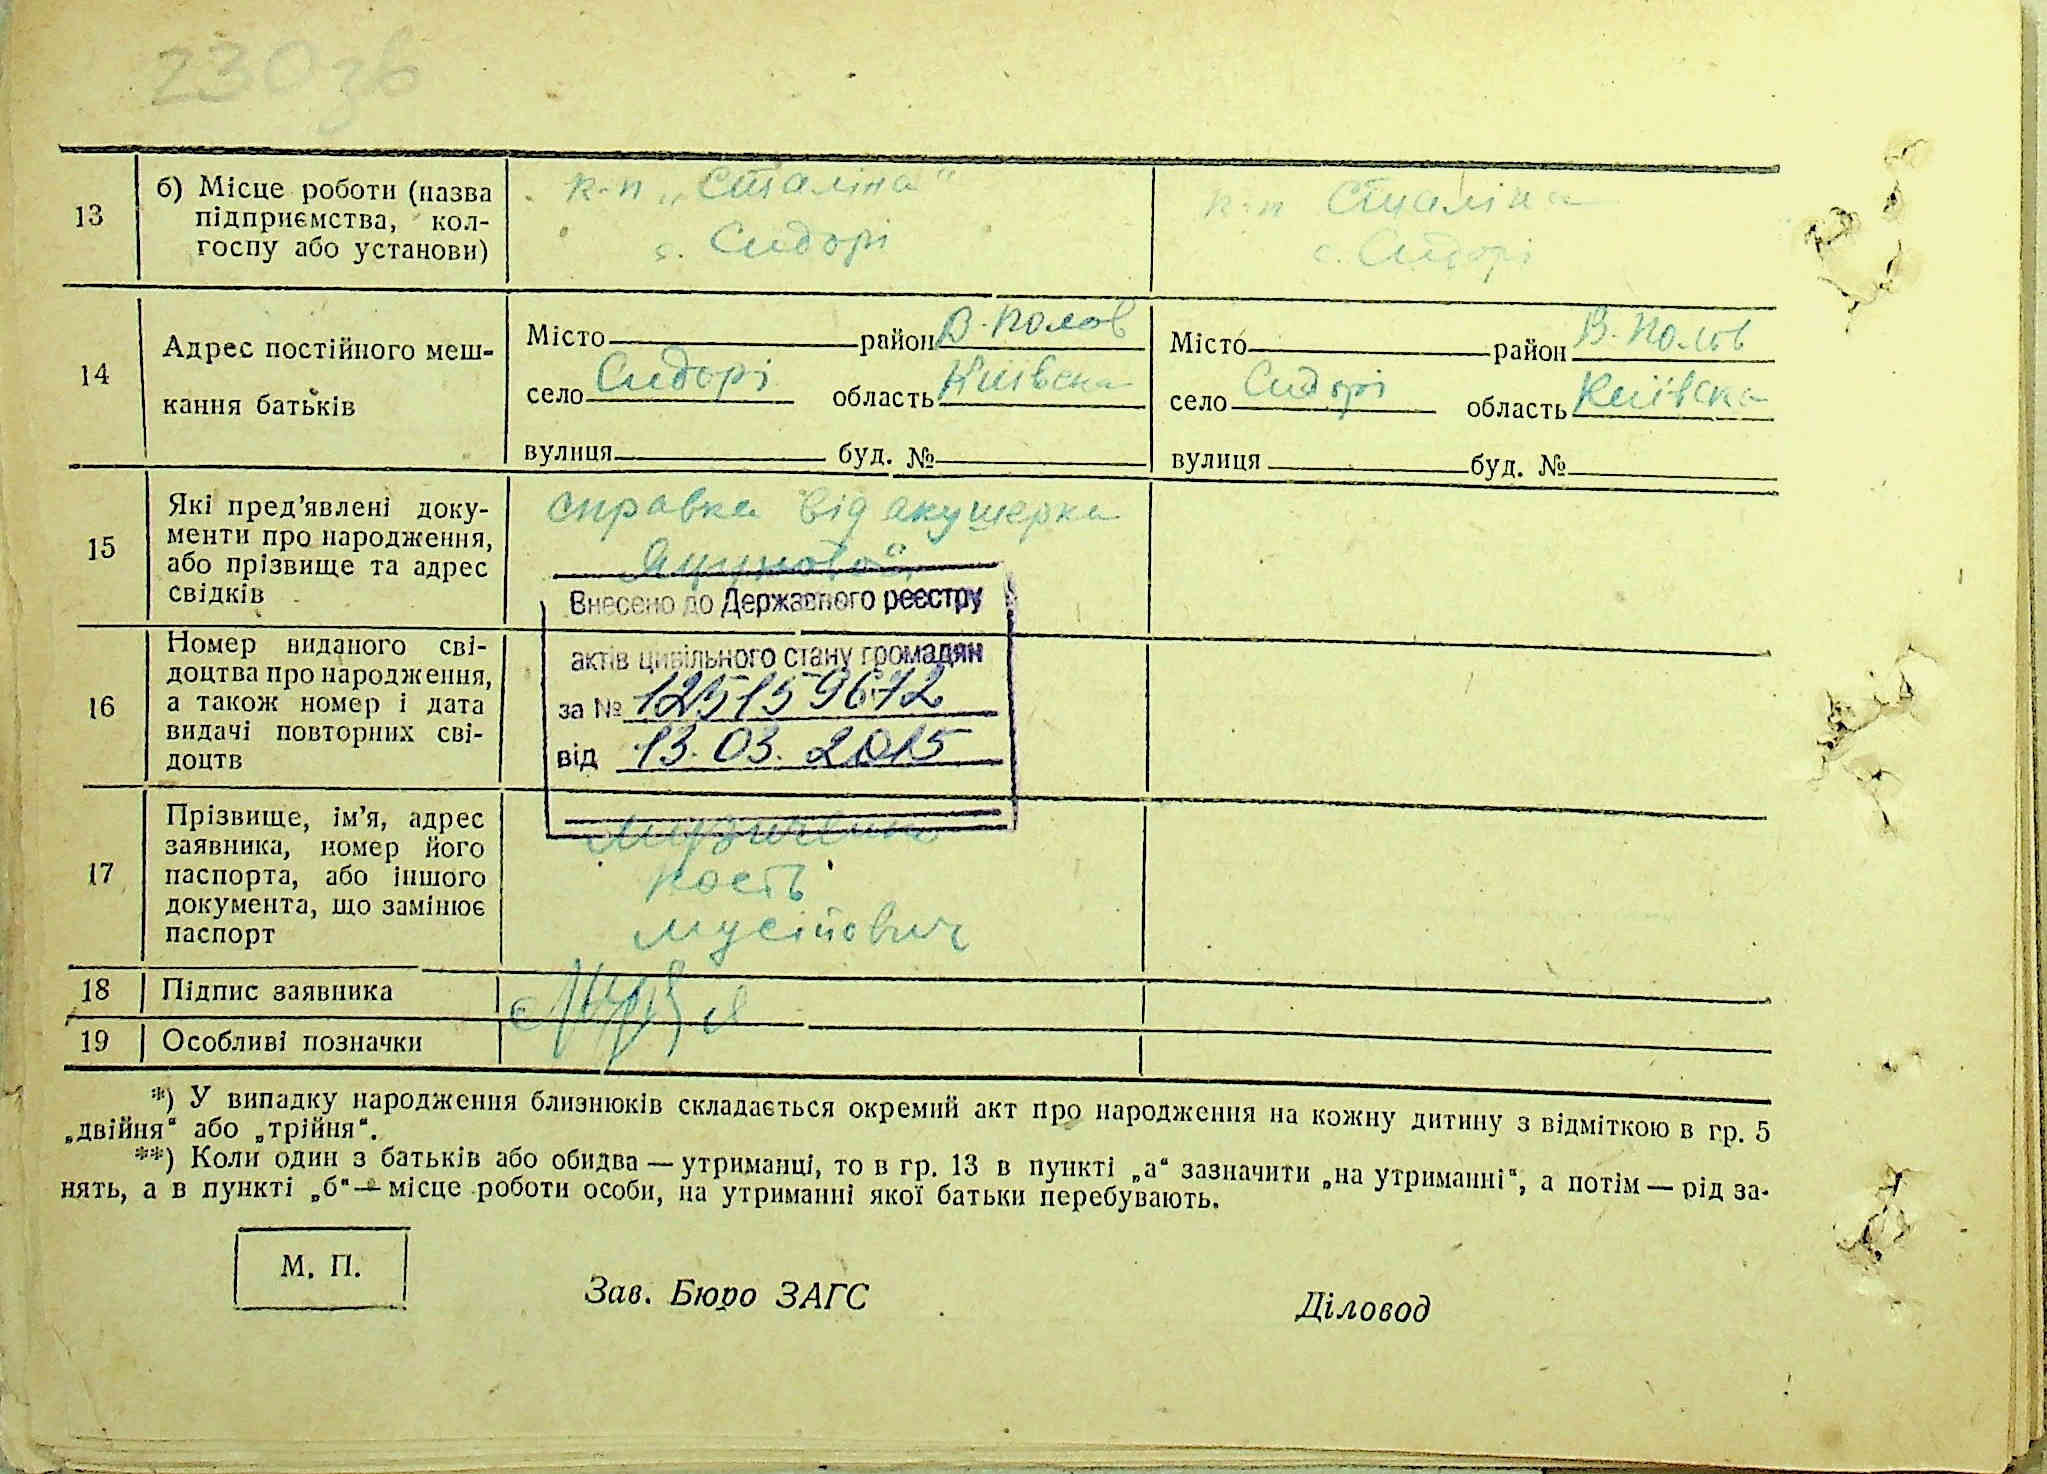 230зв
13
б) Місце роботи (назва
підприємства, кол-
госпу або установи)
к-п „Сталіна"
с. Сидорі
к-п Сталіна
с. Сидорі
14
Адрес постійного меш-
кання батьків
Місто район В-Полов
село Сидорі область Київска
вулиця буд. №
Місто район В-Полов
село Сидорі область Київска
вулиця буд. №
15
Які пред’явлені доку-
менти про народження,
або прізвище та адрес
свідків
справка від акушерка
16
Номер виданого сві-
доцтва про народження,
а також номер і дата
видачі повторних сві-
доцтв
Внесено до Державного реєстру
актів цивільного стану громадян
за № 125159672
від 13.03.2015
17
Прізвище, ім’я, адрес
заявника, номер його
паспорта, або іншого
документа, що замінює
паспорт
Кость
Мусійович
18
Підпис заявника
19
Особливі позначки
*) У випадку народження близнюків складається окремий акт про народження на кожну дитину з відміткою в гр. 5
„двійня“ або „трійня“.
**) Коли один з батьків або обидва — утриманці, то в гр. 13 в пункті „а“ зазначити „на утриманні“, а потім — рід за-
нять, а в пункті „б“ — місце роботи особи, на утриманні якої батьки перебувають.
М. П.
Зав. Бюро ЗАГС
Діловод